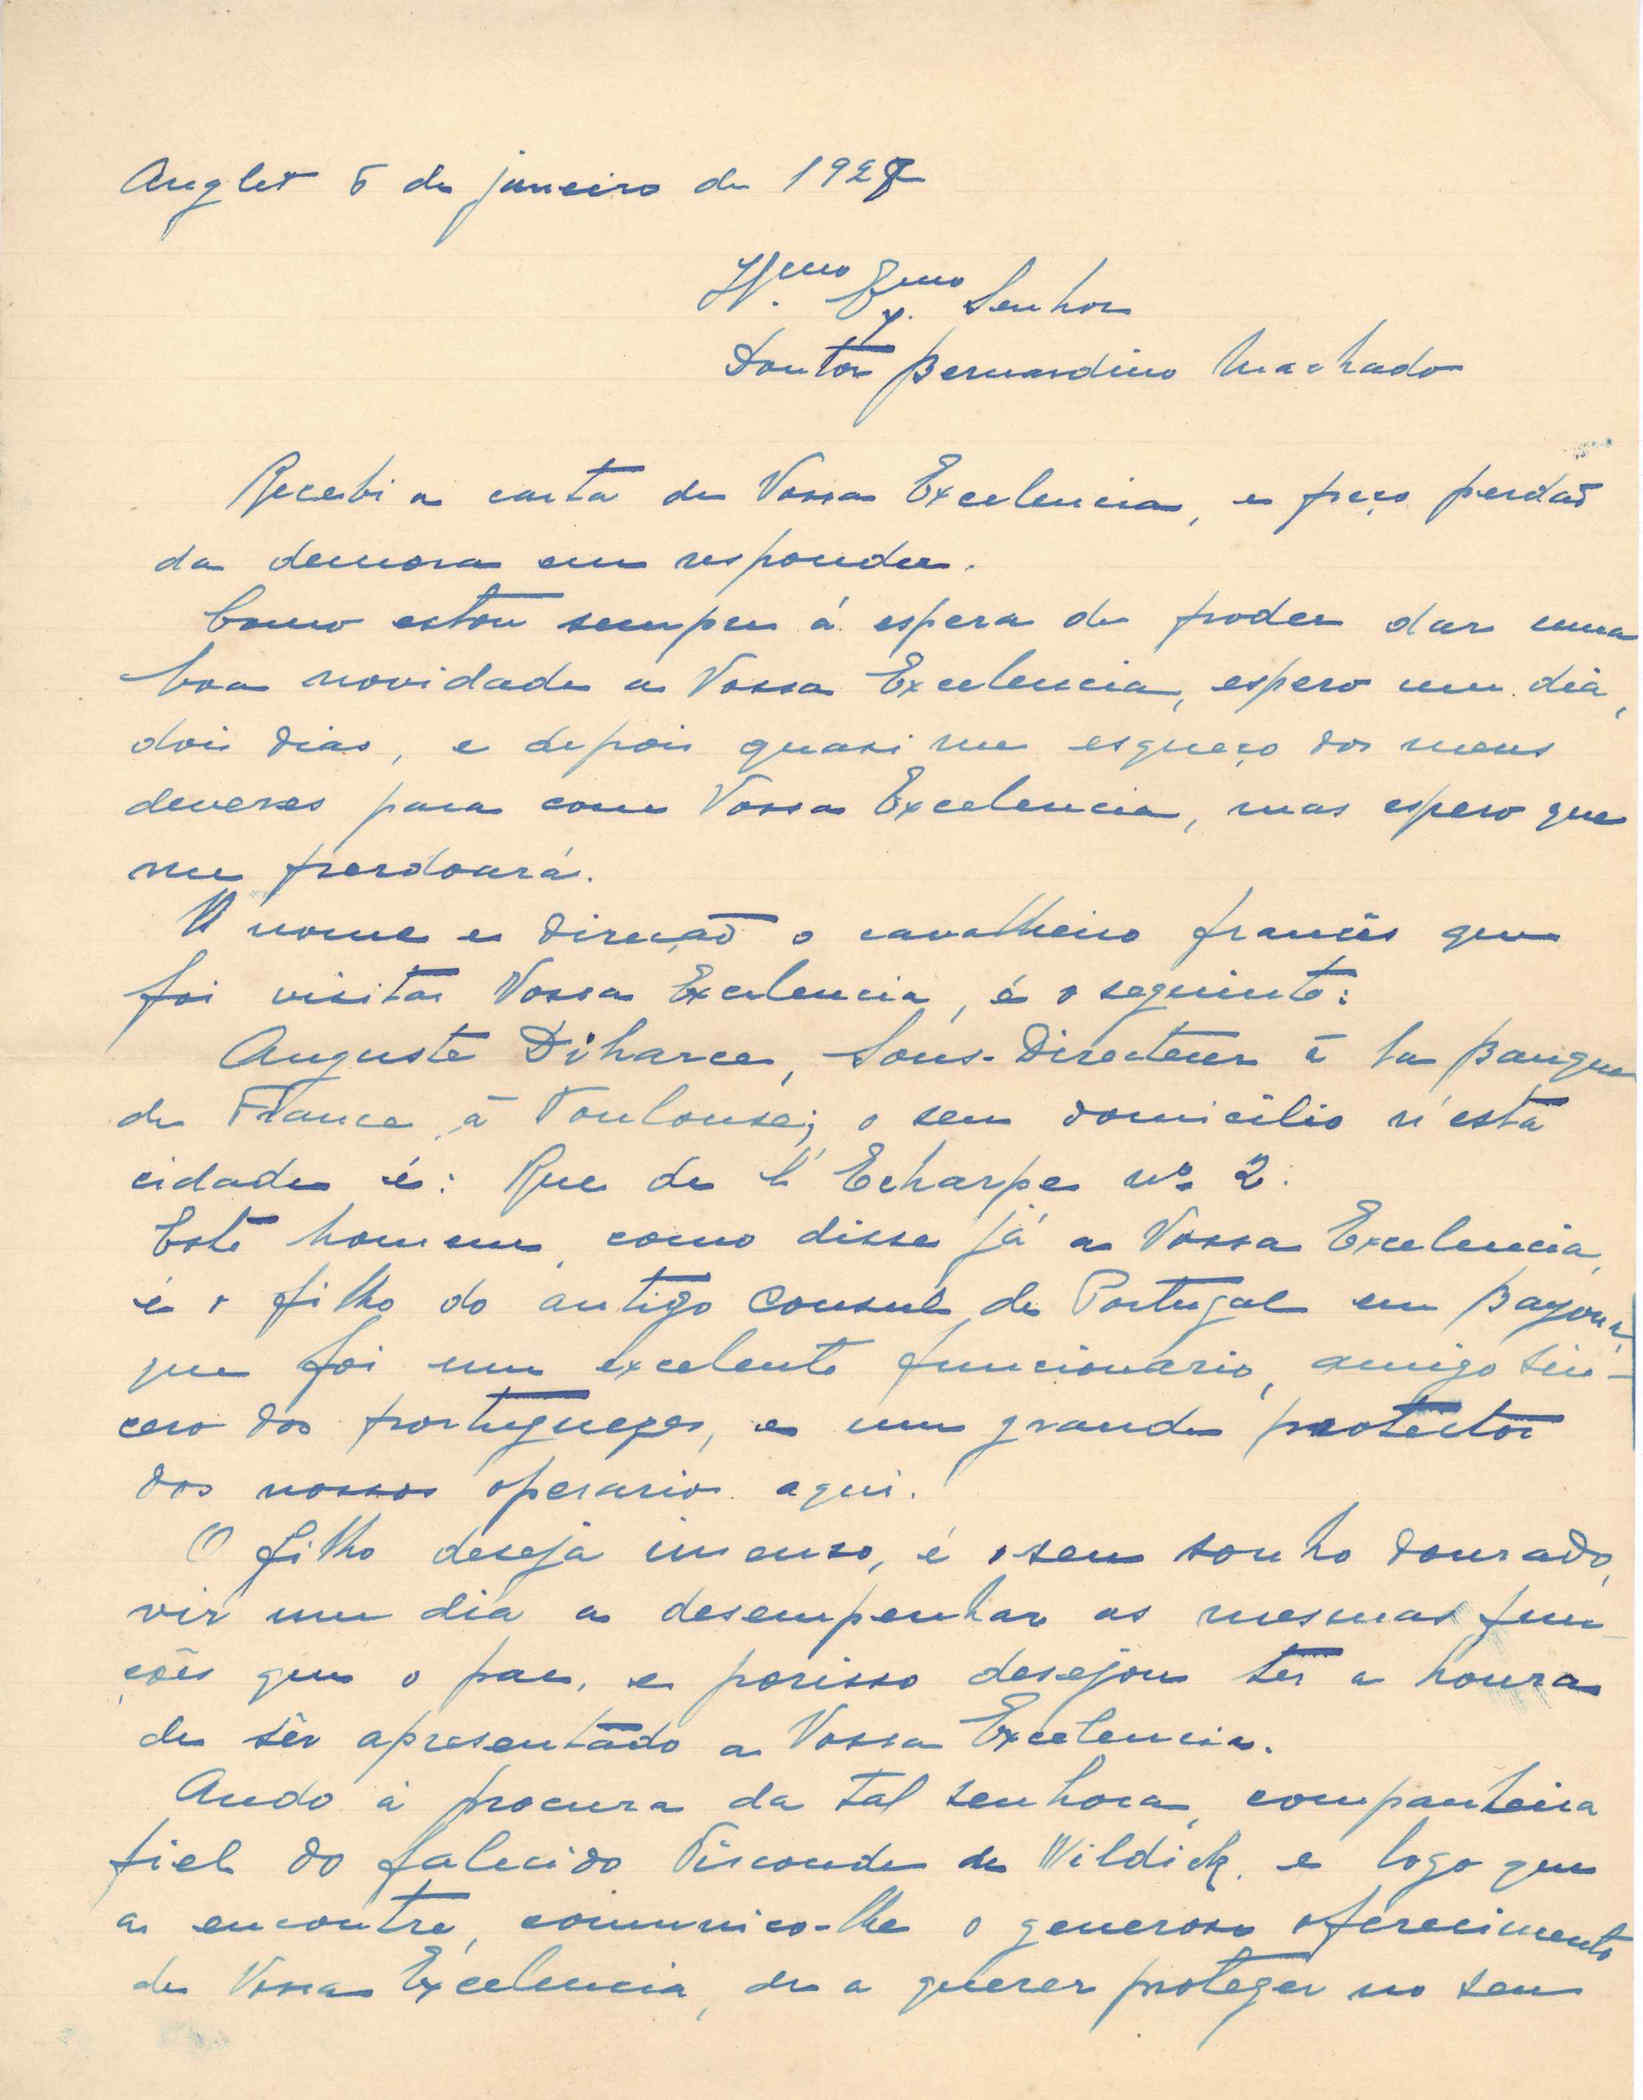 Anglet 5 de janeiro de 1928
Il.mo Ex.mo Senhor
Doutor Bernardino Machado
Recebi a carta de Vossa Excelencia, e peço perdaõ
da demora em responder.
Como estou sempre á espera de poder dar uma
boa novidade a Vossa Excelencia, espero um dia,
dois dias, e depois quasi me esqueço dos meus
deveres para com Vossa Excelencia, mas espero que
me perdoará.
O nome e direcçaõ o cavalheiro francês que
foi visitar Vossa Excelencia, é o seguinte:
Auguste Diharce, Sous-Directeur à la Banque
de France à Toulouse; o seu domicilio n'esta
cidade é: Rue de l'Echarpe nº 2.
Este homem, como disse já a Vossa Excelencia,
é o filho do antigo Consul de Portugal em Bayona,
que foi um excelente funcionario, amigo sin-
cero dos portuguezes, e um grande protector
dos nossos operarios aqui.
O filho deseja imenso, é o seu sonho dourado,
vir um dia a desempenhar as mesmas fun-
ções que o pae, e porisso desejou ter a honra
de sêr apresentado a Vossa Excelencia.
Ando á procura da tal senhora, companheira
fiel do falecido Visconde de Wildick, e logo que
a encontre, comunico-lhe o generoso oferecimento
de Vossa Excelencia, de a querer proteger no seu